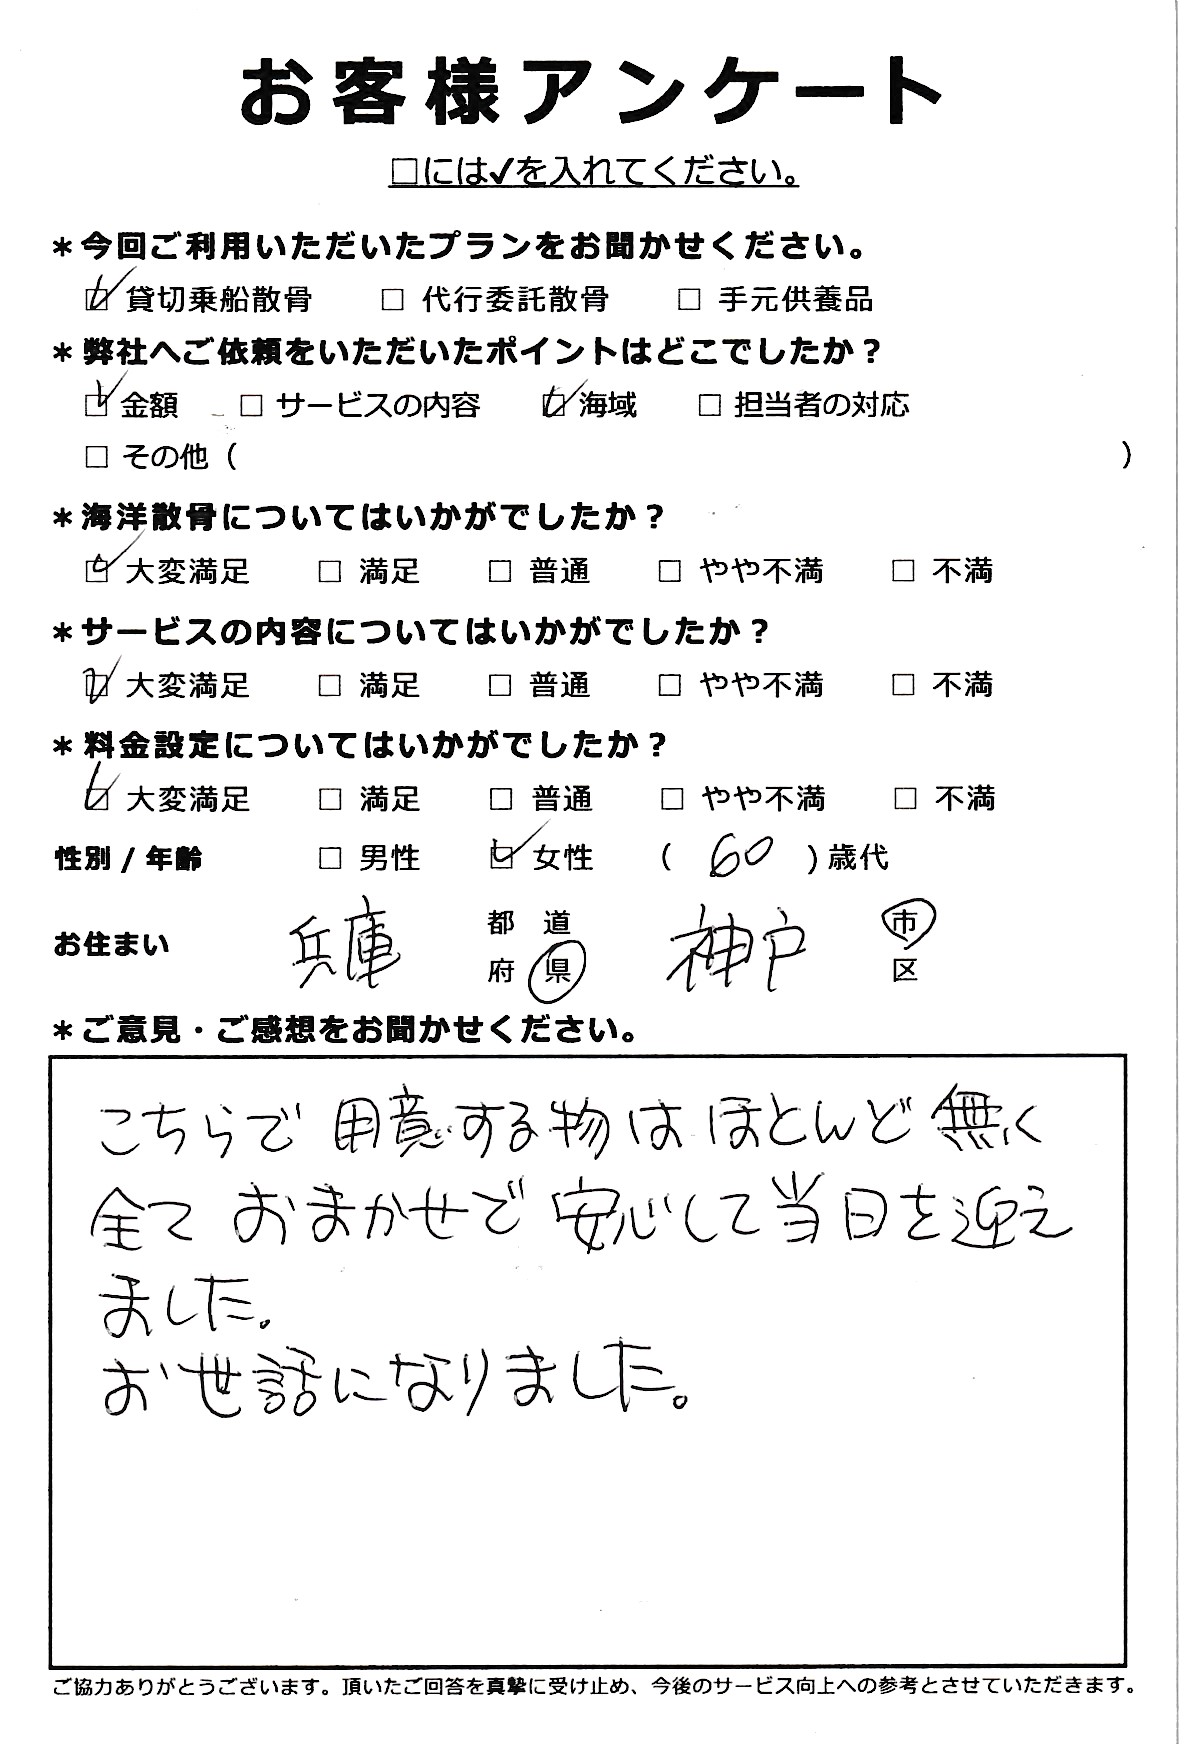 お客様アンケート
□には✓を入れてください。
＊今回ご利用いただいたプランをお聞かせください。
☑ 貸切乗船散骨 □ 代行委託散骨 □ 手元供養品
＊弊社へご依頼をいただいたポイントはどこでしたか？
☑ 金額 □ サービスの内容 ☑ 海域 □ 担当者の対応
□ その他（ ）
＊海洋散骨についてはいかがでしたか？
☑ 大変満足 □ 満足 □ 普通 □ やや不満 □ 不満
＊サービスの内容についてはいかがでしたか？
☑ 大変満足 □ 満足 □ 普通 □ やや不満 □ 不満
＊料金設定についてはいかがでしたか？
☑ 大変満足 □ 満足 □ 普通 □ やや不満 □ 不満
性別 / 年齢 □ 男性 ☑ 女性 （ 60 ）歳代
お住まい 兵庫 都 道 府 県 神戸 市 区
＊ご意見・ご感想をお聞かせください。
こちらで用意する物はほとんど無く
全ておまかせで安心して当日を迎え
ました。
お世話になりました。
ご協力ありがとうございます。頂いたご回答を真摯に受け止め、今後のサービス向上への参考とさせていただきます。